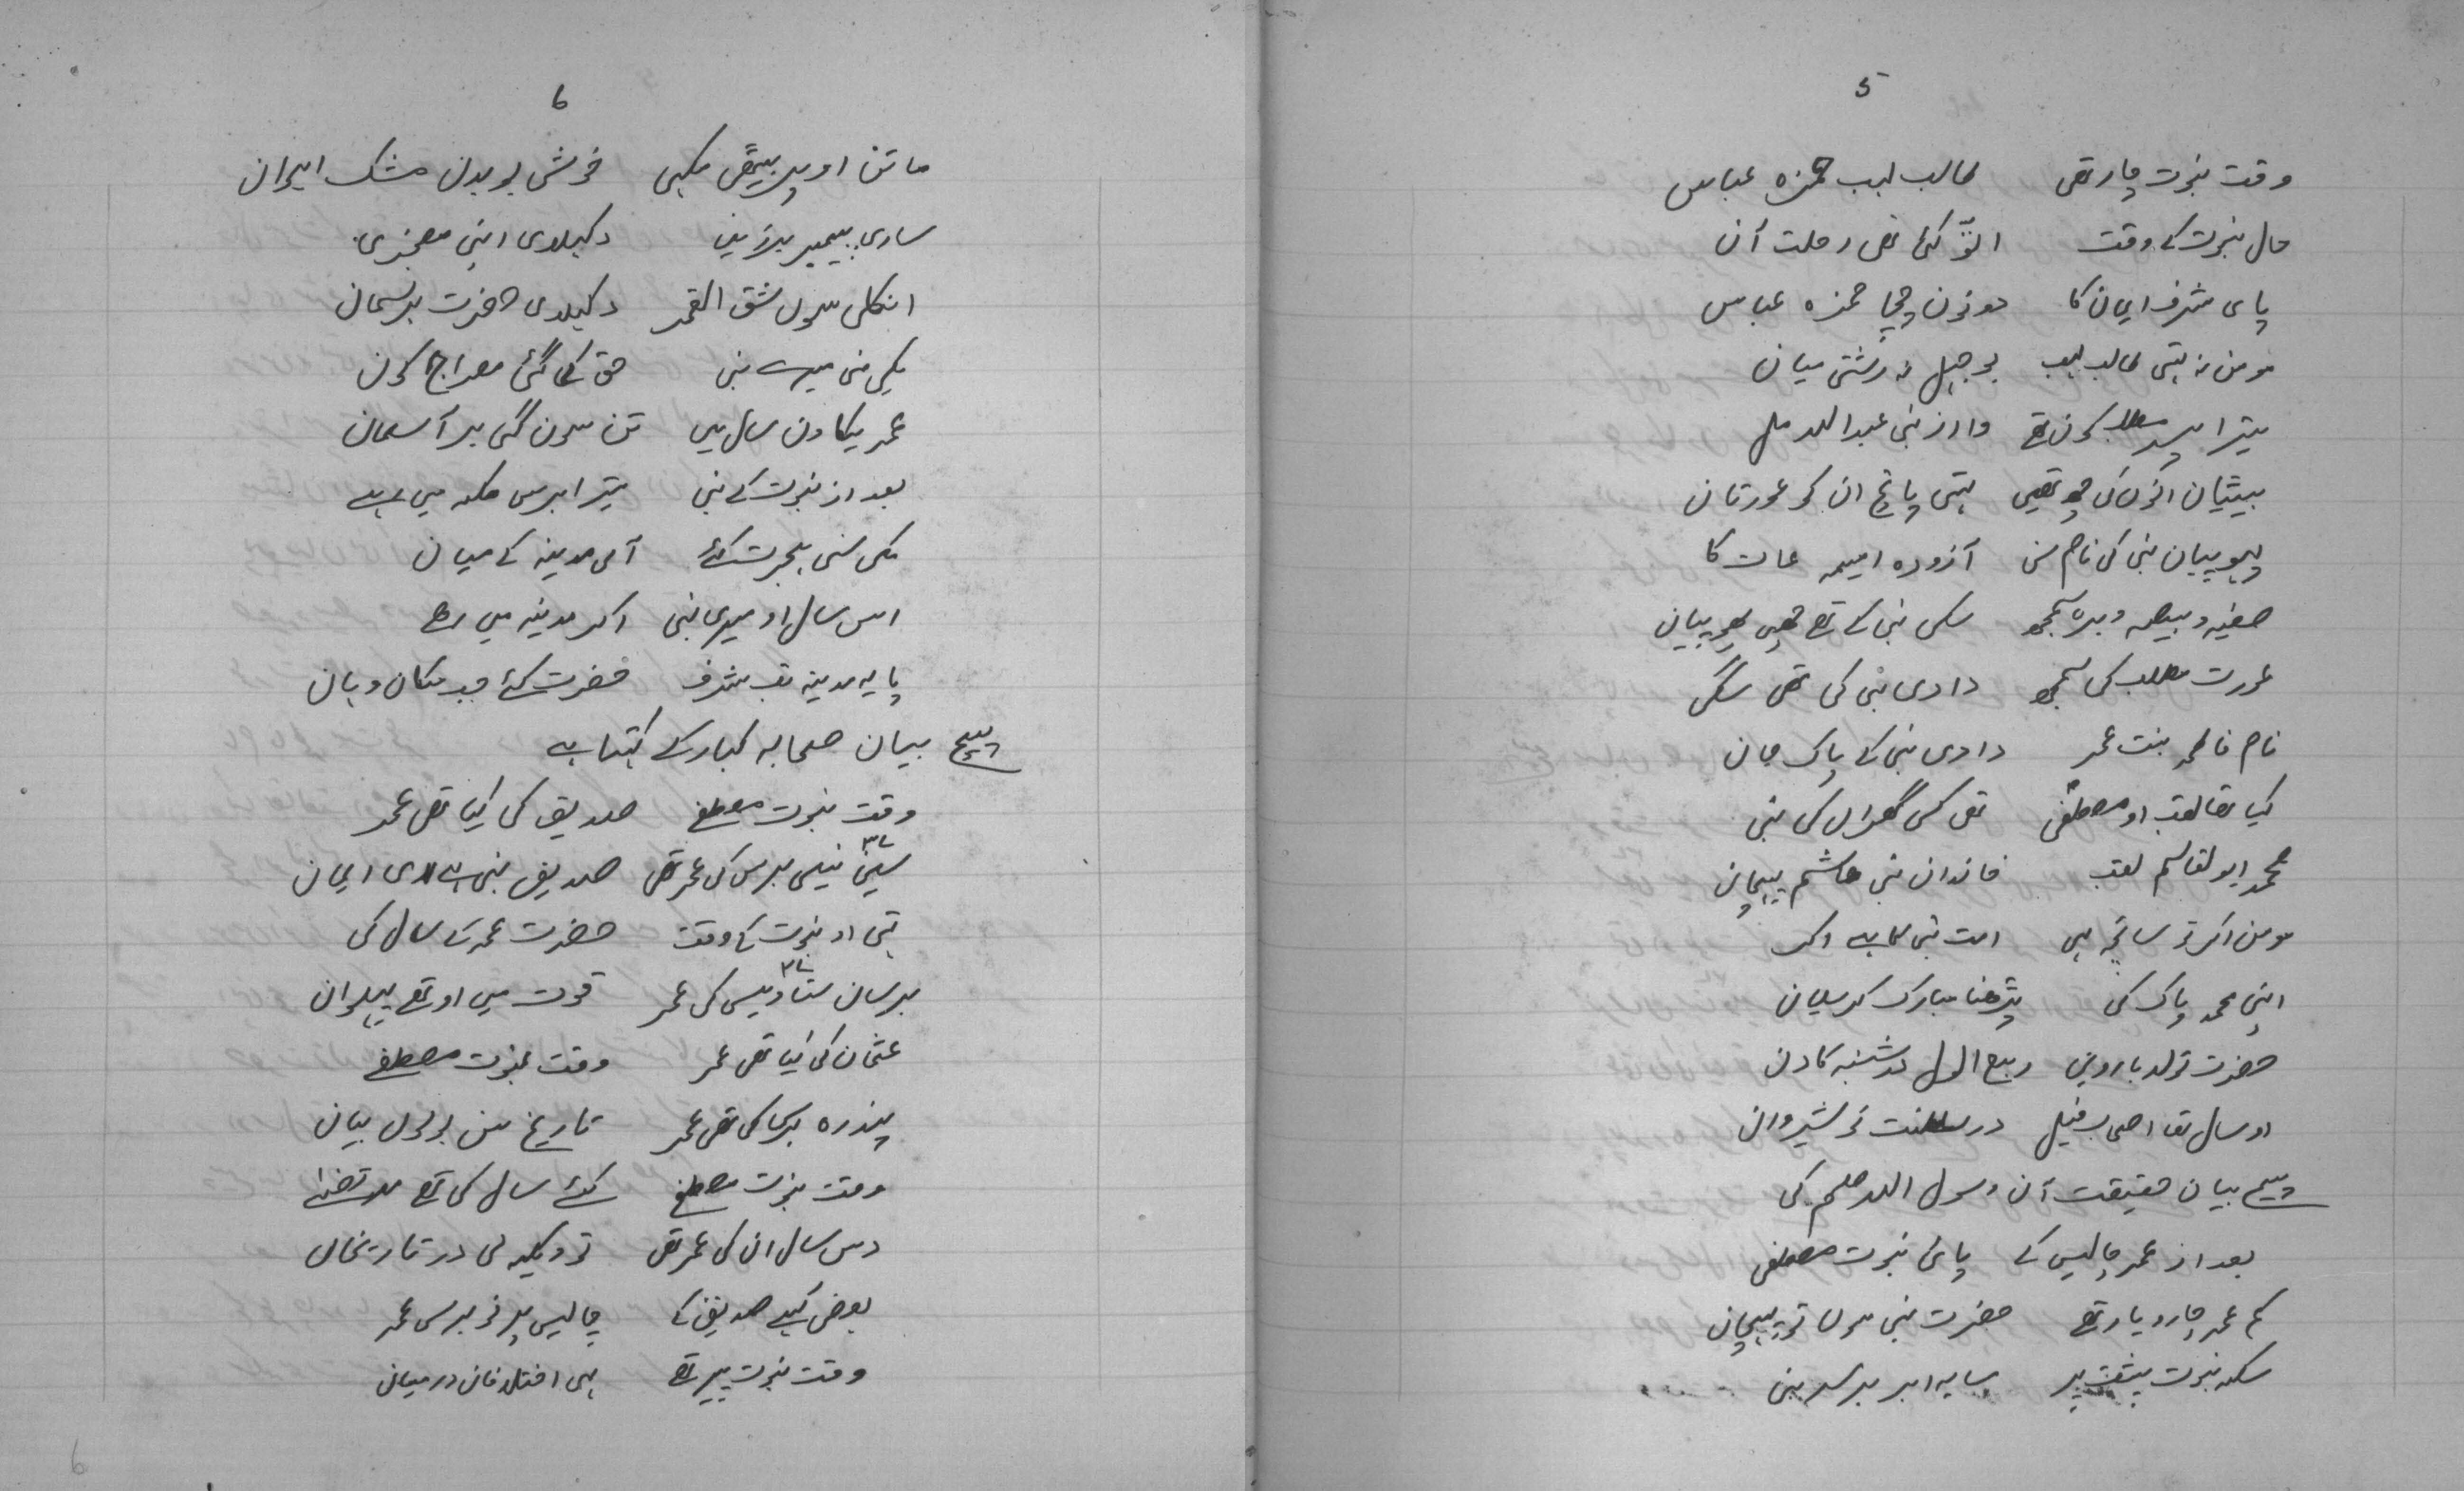 ۵
وقت نبوت چار تھی طالب لہب حمزہ عباس
حال نبوت کے وقت انوّ کئ تھی رحلت آن
پای شرف ایمان کا دونون چچا حمزہ عباس
مومن نہ ہتی طالب لہب بوجہل نہ رشتی میان
تیرا پسر مطلب کون تھے وارز نبی عبداللہ مل
بیٹیان انوں کی چھ تھیں ہتی پانچ ان کو عورتان
پھوپیان نبی کی نام سن آزوده امیمہ عات کا
صفیہ و بیضہ و برہ سمجھ سکی نبی کے تھے چھی پھوپیان
عورت مطلب کی سمجھ دادی نبی کی تھی سگی
نام فاطمہ بنت عمر دادی نبی کے پاک جان
کیا تھا لقب او مصطفی تھی کس گھرال کی نبی
محمد ابولقاسم لقب خاندان نبی ھاشم پہچان
مومن اگر تو سانچہ ہی امت نبی کا ہے اگر
اپنی محمد پاک کی پڑھنا مبارک کرسیان
حضرت تولد بارویں ربیع الول دوشنبہ کا دن
او سال تھا اصحاب فیل در سلطنت نوشیروان
بیچ بیان حقیقت آن رسول اللہ صلعم کی
بعد از عمر چالیس کے پائی نبوت مصطفی
کم عمر چارو یار تھے حضرت نبی سوں تو پہچان
سکہ نبوت پشت پر سایہ ابر بر سر نبی
۶
ما تن اوپر بیٹھی مکھی خوشی بو بدن مشک ایران
ساری پیمبر برزمین دکھلادی اپنی معجزی
انگلی سوں شق القمر دکھلادی حضرت برسمان
یکی منی میرے نبی حق کا گئ معراج کون
عمر یکاون سال میں تن سون گئی بر آسمان
بعد از نبوت کے نبی تیرا برس مکہ میں رہے
مکی ستی ہجرت کئے آی مدینہ کے میان
اس سال او میری نبی اکر مدینہ میں رہے
پایہ مدینہ تب شرف حضرت کئے جب مکان وہان
بیچ بیان صحابہ کبار کے کہتا ہے
وقت نبوت مصطفے صدیق کی کیا تھی عمر
سیں تیس برس کی عمر تھی صدیق نبی لادی ایمان
ہتی او نبوت کے وقت حضرت عمر کے سال کی
برسان ستاویس کی عمر قوت میں او تھے پہلوان
عثمان کی کیا تھی عمر وقت نبوت مصطفے
پندرہ برس کی تھی عمر تاریخ میں بولوں بیان
وقت نبوت مصطفے کئے سال کی تھے مرتضےٰ
دس سال ان کی عمر تھی تو دیکھ لی در تاریخان
بعضی کہے صدیق کے چالیس پر نو برس عمر
وقت نبوت پیر تھے ہی اختلافان درمیان
6